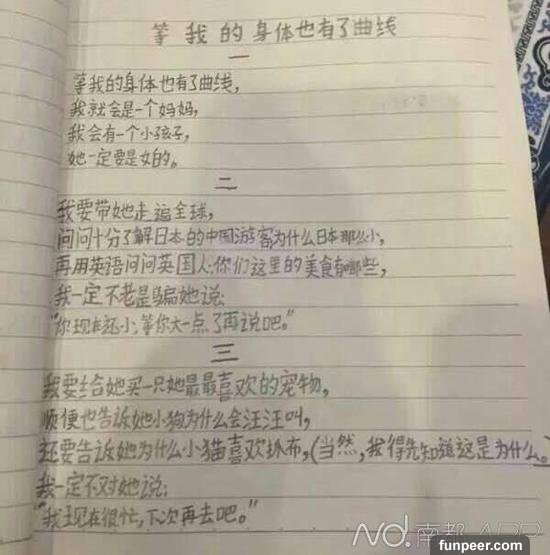 等我的身体也有了曲线
一
等我的身体也有了曲线,
我就会是一个妈妈,
我会有一个小孩子,
她一定要是女的。
二
我要带她走遍全球,
问问十分了解日本的中国游客为什么日本那么小,
再用英语问问英国人:你们这里的美食有哪些,
我一定不老是骗她说:
"你现在还小,等你大一点了再说吧。"
三
我要给她买一只她最最喜欢的宠物,
顺便也告诉她小狗为什么会汪汪叫,
还要告诉她为什么小猫喜欢抓布,(当然,我得先知道这是为什么。
我一定不对她说:
"我现在很忙,下次再去吧。"
ND.南都APP
funpeer.com